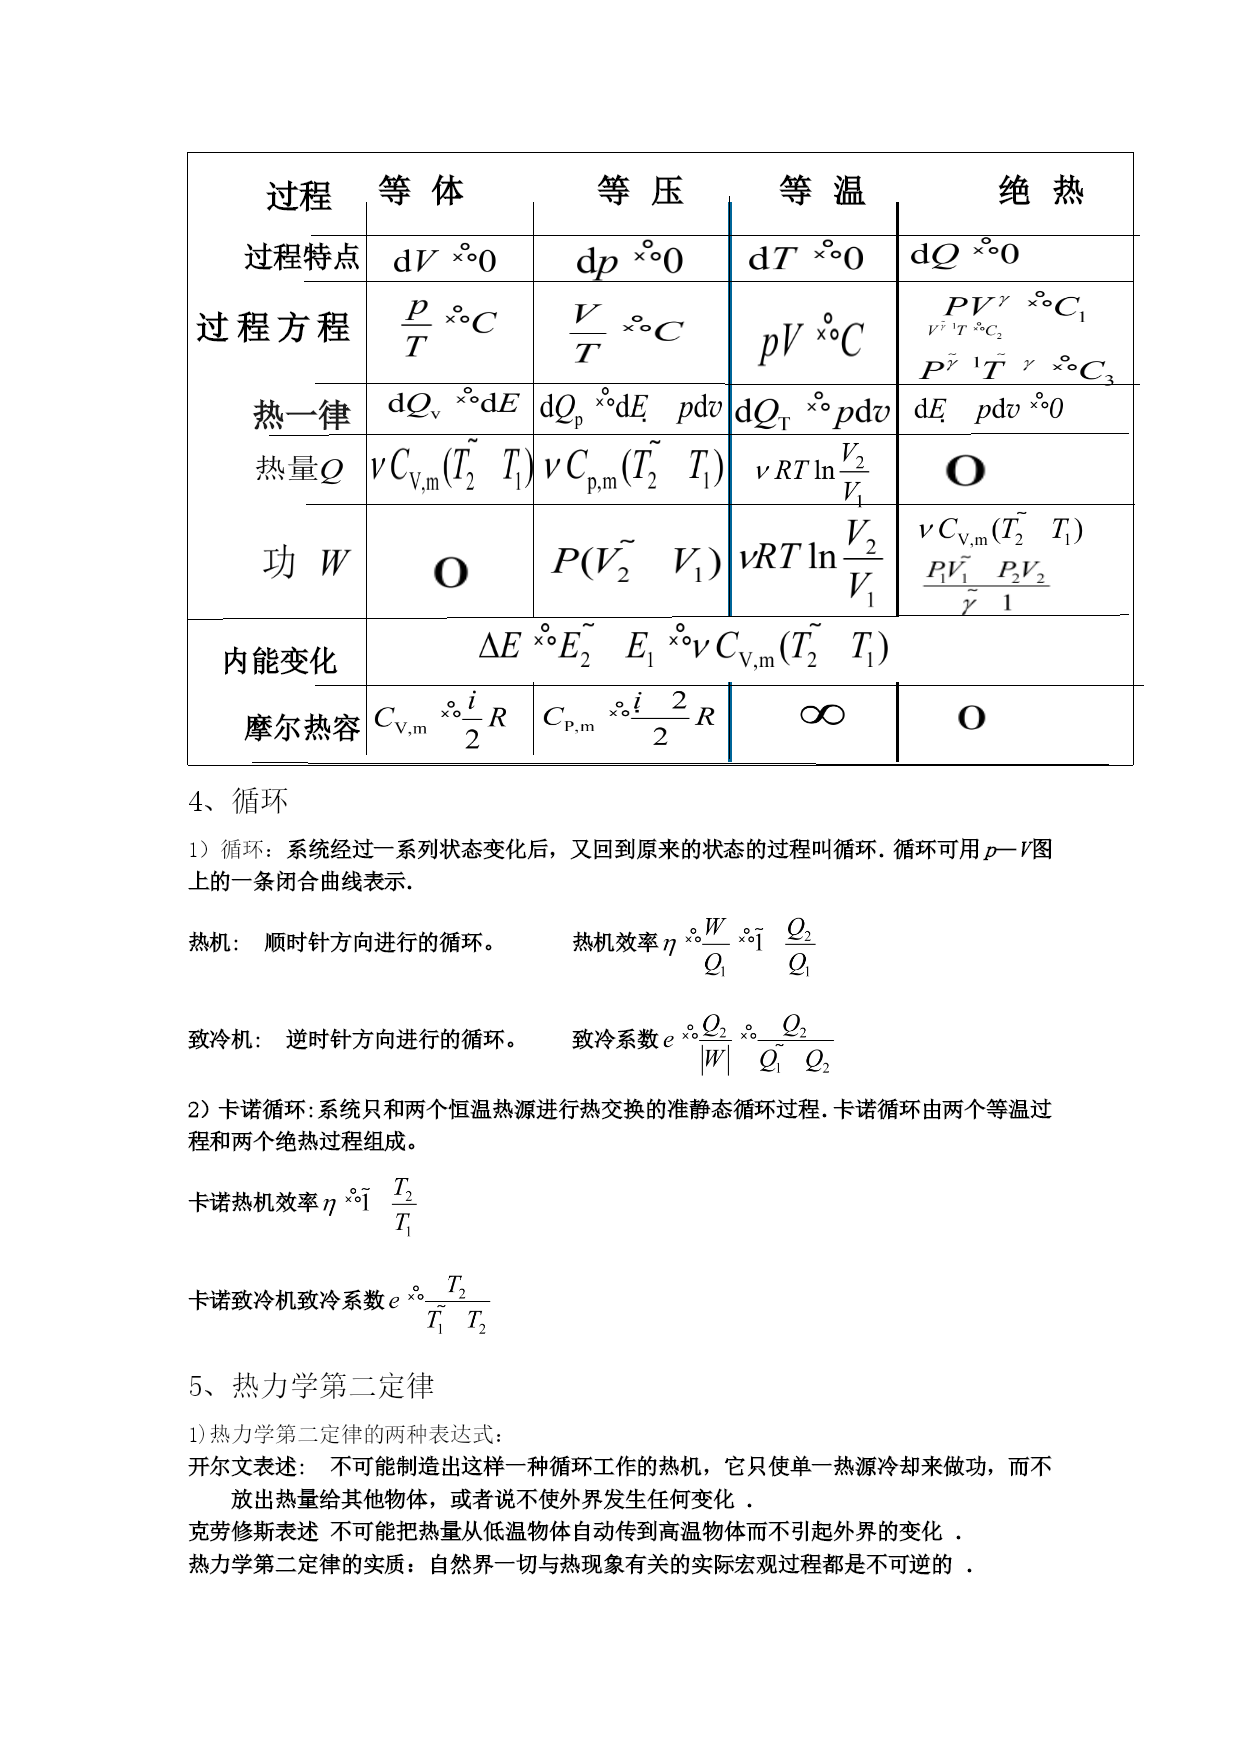 过程 等 体 等 压 等 温 绝 热
过程特点 dV ×°°0 dp ×°°0 dT ×°°0 dQ ×°°0
过程方程 p/T ×°°C V/T ×°°C pV ×°°C PV^γ ×°°C₁
V^γ~ 1 T ×°°C₂
P^γ~ 1 T~ γ ×°°C₃
热一律 dQᵥ ×°°dE dQₚ ×°°dE. pdv dQ_T ×°°pdv dE. pdv ×°°0
热量Q νC_V,m(T₂~ T₁) νC_p,m(T₂~ T₁) νRT ln V₂/V₁ O
功 W O P(V₂~ V₁) νRT ln V₂/V₁ νC_V,m(T₂~ T₁)
P₁V₁~ P₂V₂/γ~ 1
内能变化 ΔE ×°°E₂~ E₁ ×°°νC_V,m(T₂~ T₁)
摩尔热容 C_V,m ×°° i/2 R C_P,m ×°° i. 2/2 R ∞ O
4、循环
1）循环：系统经过一系列状态变化后，又回到原来的状态的过程叫循环．循环可用p—V图
上的一条闭合曲线表示．
热机： 顺时针方向进行的循环。 热机效率η ×°° W/Q₁ ×°°~1 Q₂/Q₁
致冷机： 逆时针方向进行的循环。 致冷系数e ×°° Q₂/|W| ×°° Q₂/Q₁~ Q₂
2）卡诺循环:系统只和两个恒温热源进行热交换的准静态循环过程．卡诺循环由两个等温过
程和两个绝热过程组成。
卡诺热机效率η ×°°~1 T₂/T₁
卡诺致冷机致冷系数e ×°° T₂/T₁~ T₂
5、热力学第二定律
1)热力学第二定律的两种表达式：
开尔文表述： 不可能制造出这样一种循环工作的热机，它只使单一热源冷却来做功，而不
放出热量给其他物体，或者说不使外界发生任何变化 ．
克劳修斯表述 不可能把热量从低温物体自动传到高温物体而不引起外界的变化 ．
热力学第二定律的实质：自然界一切与热现象有关的实际宏观过程都是不可逆的 ．